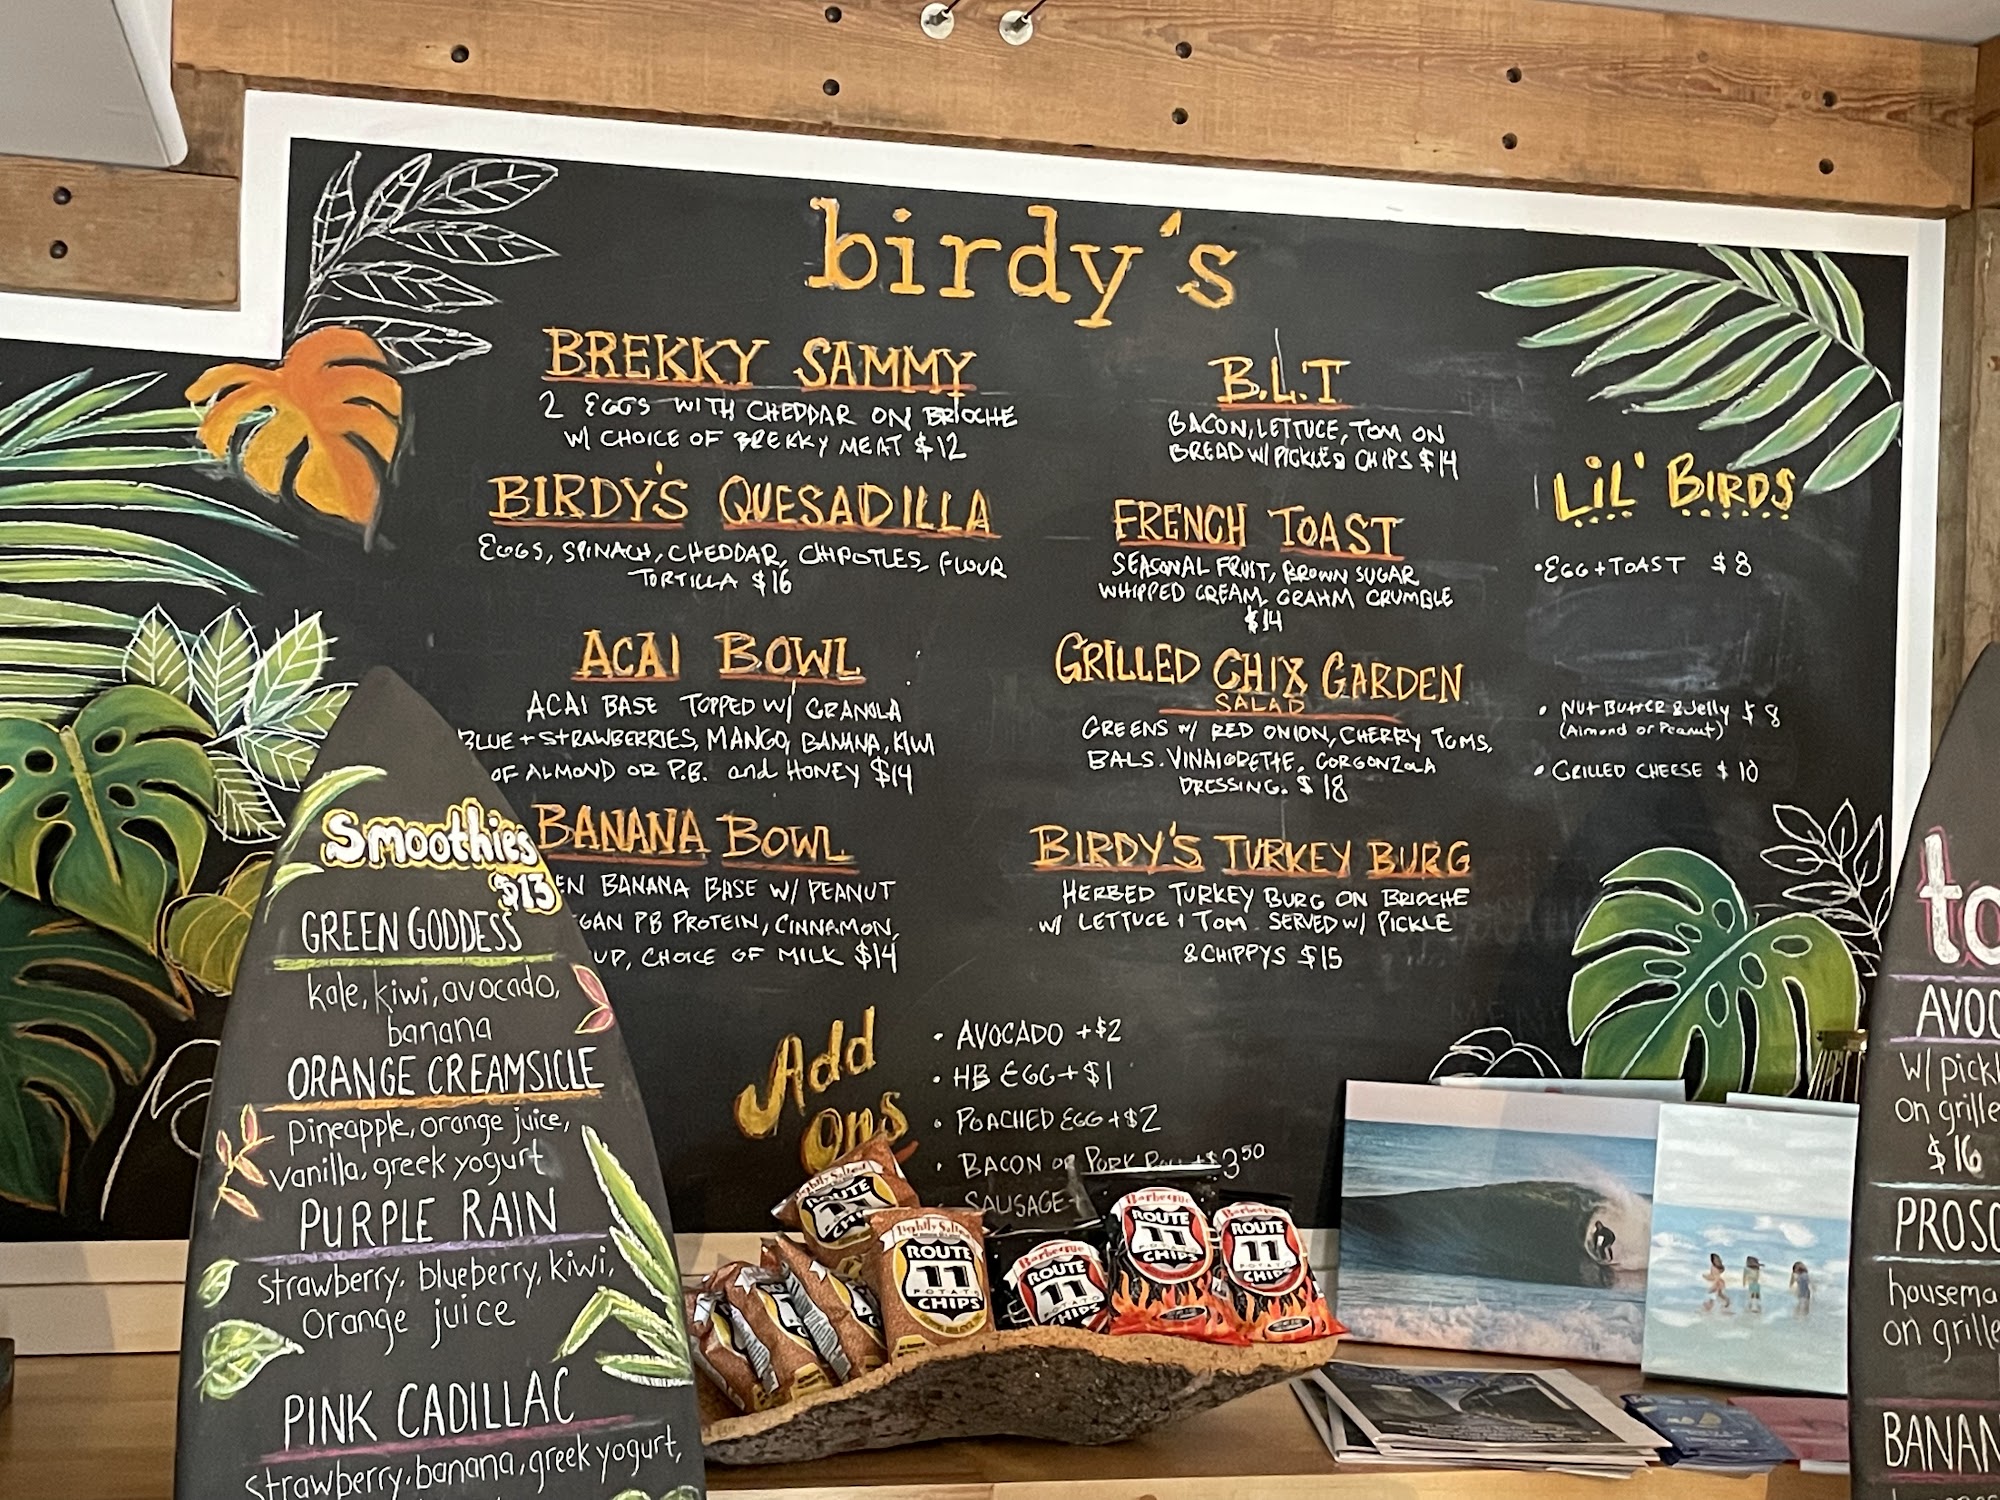 birdy's
BREKKY SAMMY
2 EGGS WITH CHEDDAR ON BRIOCHE
W/ CHOICE OF BREKKY MEAT $12
BIRDY'S QUESADILLA
EGGS, SPINACH, CHEDDAR, CHIPOTLES, FLOUR
TORTILLA $16
ACAI BOWL
ACAI BASE TOPPED W/ GRANOLA
BLUE + STRAWBERRIES, MANGO, BANANA, KIWI
OF ALMOND OR P.B. and HONEY $14
BANANA BOWL
BANANA BASE W/ PEANUT
PB PROTEIN, CINNAMON,
CHOICE OF MILK $14
B.L.T
BACON, LETTUCE, TOM ON
BREAD W/ PICKLE & CHIPS $14
FRENCH TOAST
SEASONAL FRUIT, BROWN SUGAR
WHIPPED CREAM, GRAHM CRUMBLE
$14
GRILLED CHIX GARDEN
SALAD
GREENS W/ RED ONION, CHERRY TOMS,
BALS. VINAIGRETTE, GORGONZOLA
DRESSING. $18
BIRDY'S TURKEY BURG
HERBED TURKEY BURG ON BRIOCHE
W/ LETTUCE + TOM. SERVED W/ PICKLE
& CHIPPYS $15
LIL' BIRDS
• EGG + TOAST $8
• NUT BUTTER & Jelly $8
(Almond or Peanut)
• GRILLED CHEESE $10
Add
Ons
• AVOCADO +$2
• HB EGG +$1
• POACHED EGG +$2
• BACON OR PORK ROLL +$3.50
• SAUSAGE +
Smoothies
$13
GREEN GODDESS
kale, kiwi, avocado,
banana
ORANGE CREAMSICLE
pineapple, orange juice,
vanilla, greek yogurt
PURPLE RAIN
strawberry, blueberry, kiwi,
orange juice
PINK CADILLAC
strawberry, banana, greek yogurt,
Lightly Salted
ROUTE
11
POTATO
CHIPS
Barbeque
ROUTE
11
POTATO
CHIPS
Barbeque
ROUTE
11
POTATO
CHIPS
Barbeque
ROUTE
11
CHIPS
W/
on
$16
on